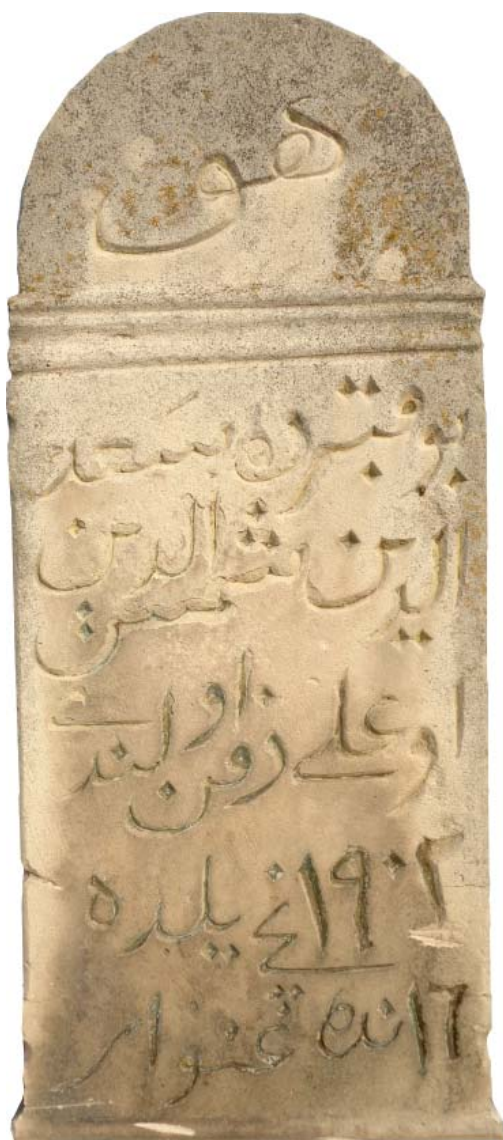 بو قبرده سعد
الدين شمس الدين
اوغلى دفن اولندى
١٩٠٢ نچى يلده
١٦ نده غنوار